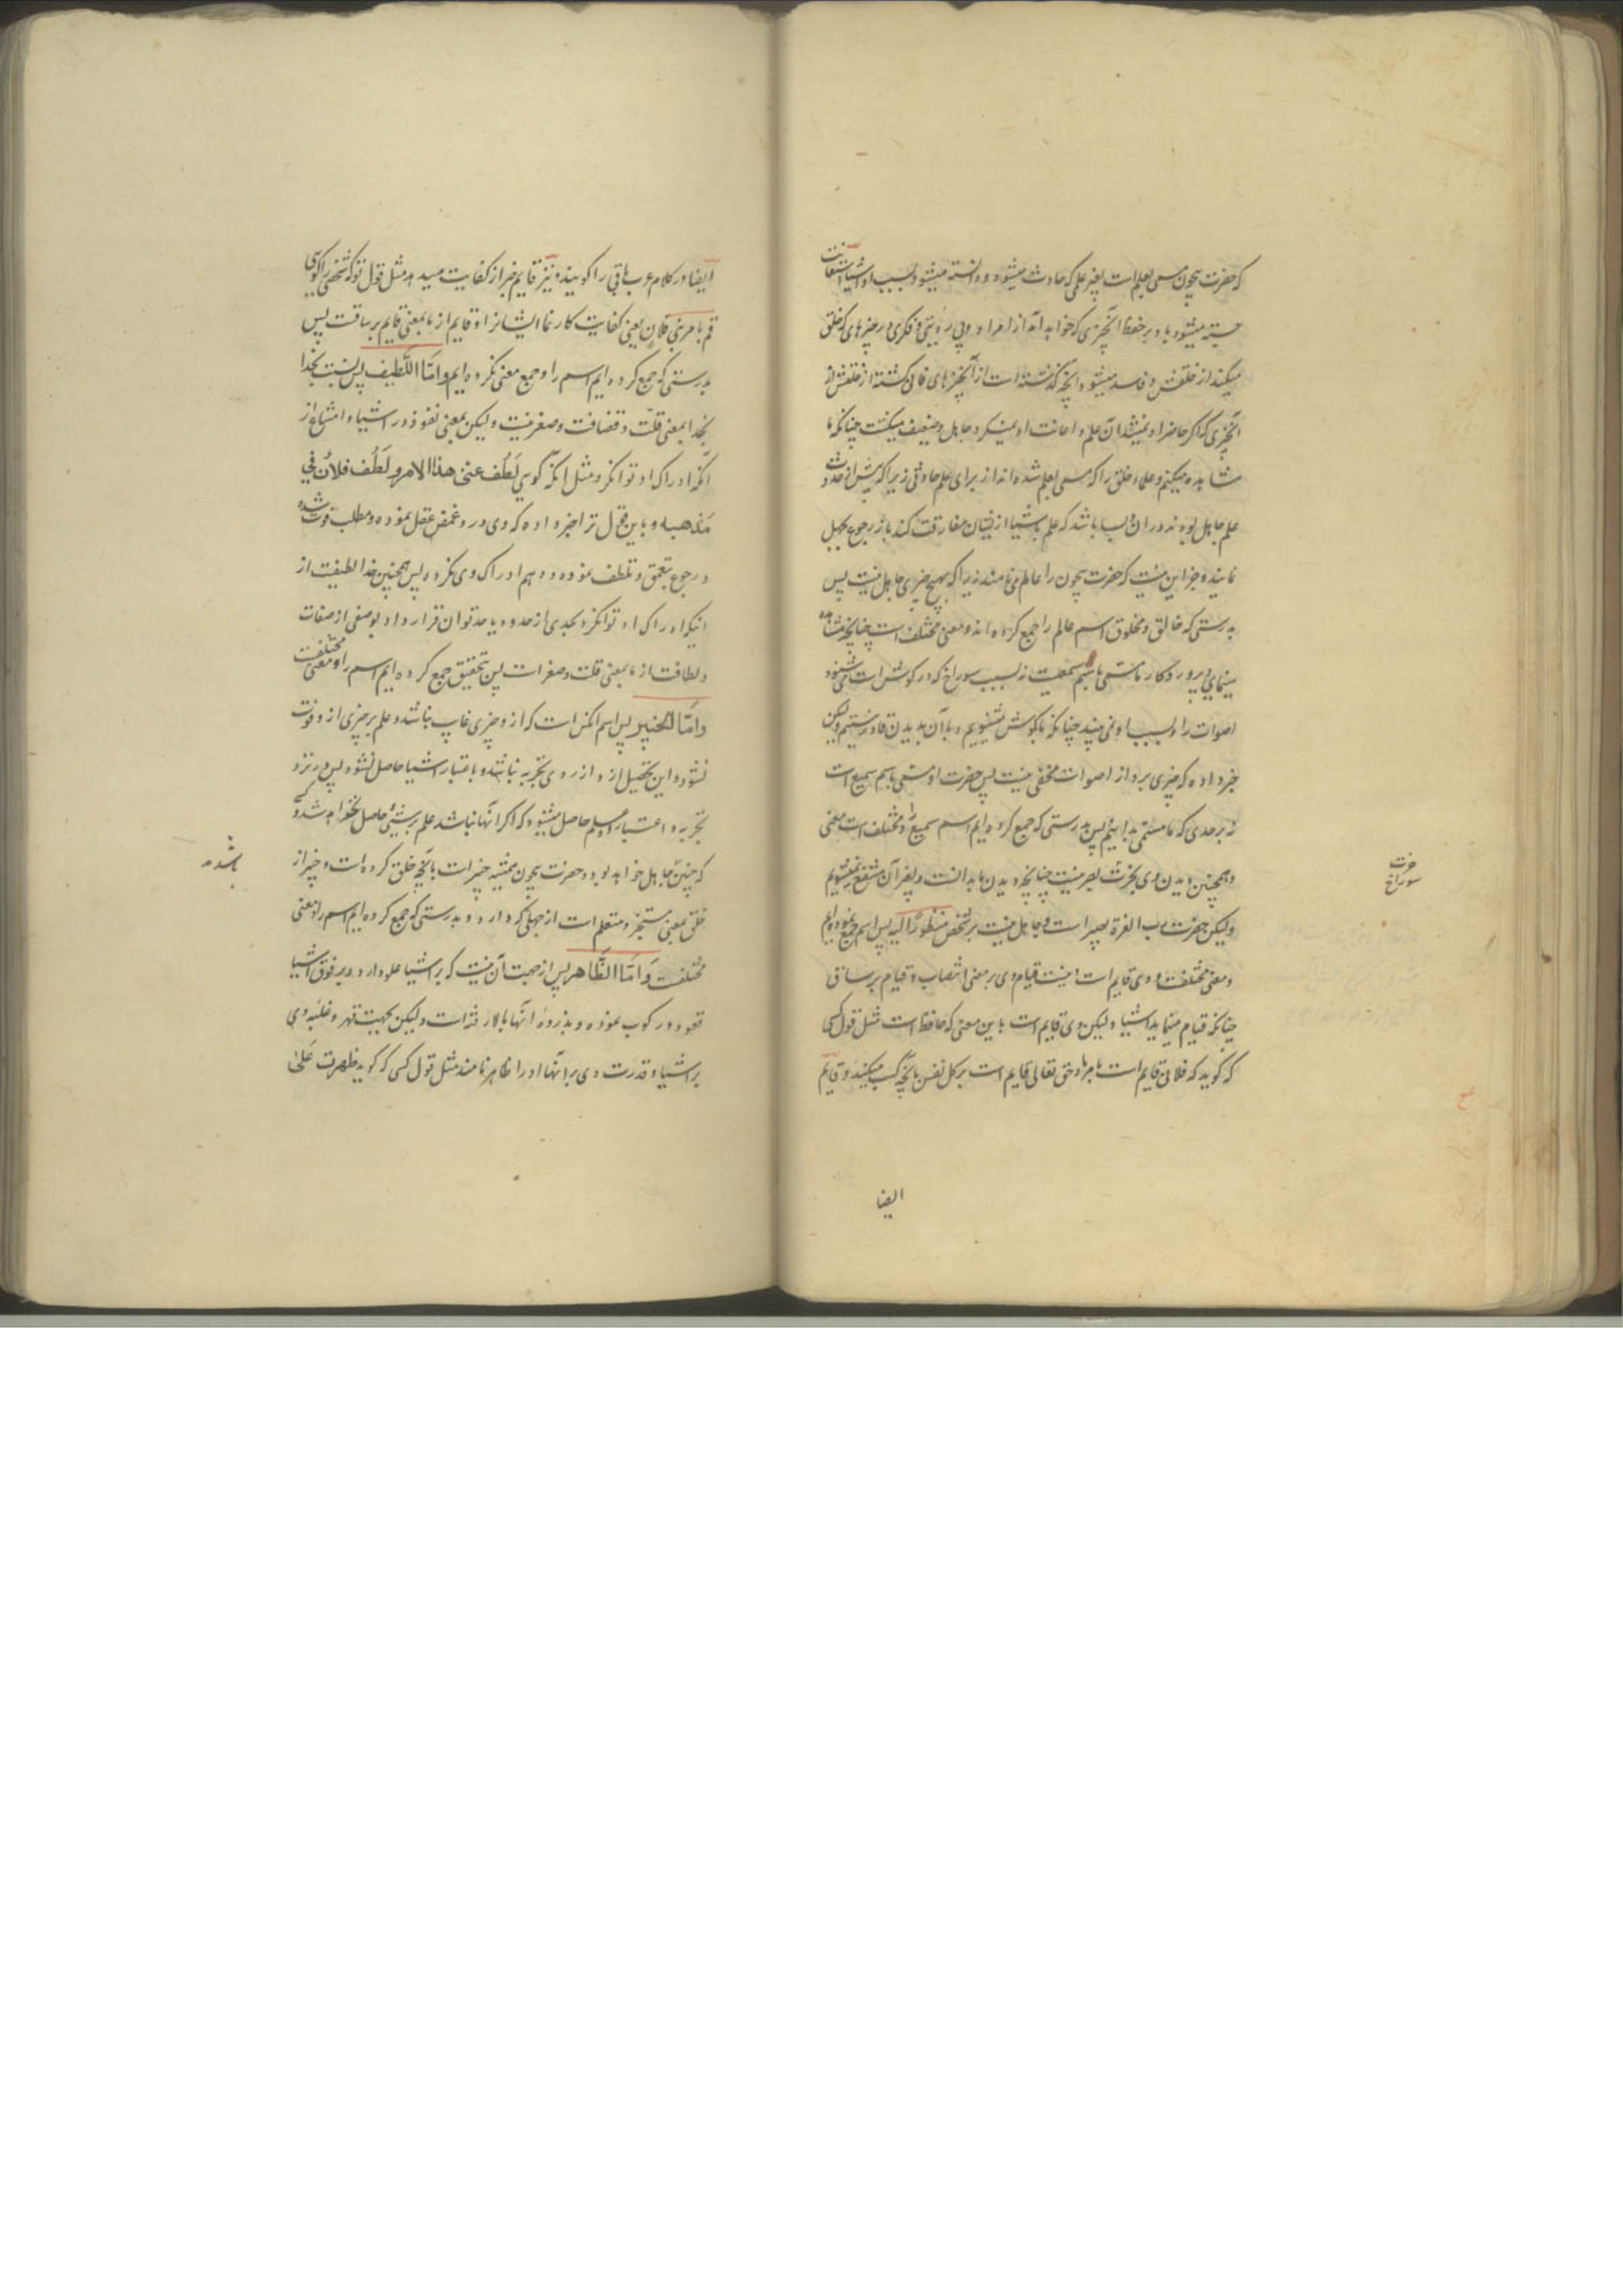 که حضرت بیچون مسمی بعلم است بغیر علمی که حادث میشود و دانسته میشود بسبب او اشیا استعانت
جسته میشود باو بر حفظ آنچیزی که خواهد آمد از امر او و بی رویتی و فکری در چیزهای که خلق
میکند از خلقش و فاسد میشود آنچه گذشته است از آنچیزهای فانی گشته از خلقش از
آنچیزی که اگر حاضر او نمیشد آن علم و اعانت او نمیکرد جاهل و ضعیف میگشت چنانکه ما
مشاهده میکنیم و علماء خلق را که مسمی بعلم شده اند از برای علم حادثی زیرا که پیش از حدوث
علم جاهل بوده اند در آن و بسا باشد که علم باشیا از ایشان مفارقت کند باز رجوع بجهل
نمایند و جز این نیست که حضرت بیچون را عالم می نامند زیرا که بهیچ چیزی جاهل نیست پس
بدرستی که خالق و مخلوق اسم عالم را جمع کرده اند و معنی مختلف است چنانچه مشاهده
مینمایی و پروردگار ما مسمی باسم سمیعست نه بسبب سوراخ که در گوش است که شنود
اصوات را و بسبب او نمی بیند چنانکه ما بگوش بشنویم و با آن بدیدن قادر نیستیم ولیکن
خبر داده که چیزی برو از اصوات مخفی نیست پس حضرت او مسمی باسم سمیع است
نه بر حدی که ما مسمی بدانیم پس بدرستی که جمع کرده ایم اسم سمیع را و مختلف است معنی
و همچنین دیدن وی بخرت بصر نیست چنانچه دیدن ما بدانست و بغیر آن منتفع نمیشویم
ولیکن حضرت رب العزة بصیر است و جاهل نیست بر شخص منظورا الیه پس اسم جمع نموده ایم
و معنی مختلفست و وی قایم است اینست قیام وی بر معنی انتصاب و قیام بر ساق
چنانکه قیام مینماید اشیا ولیکن وی قایم است باین معنی که حافظ است مثل قول کسی
که گوید که فلانی قایم است بامر ما و حق تعالی قایم است بر کل نفس بآنچه کسب میکنند و قایم
خرت
سوراخ
ایضا
ایضا در کلام عرب باقی را گویند و نیز قایم خبر از کفایت میدهد مثل قول تو که شخصی را گویی
قم بامر بنی فلان یعنی کفایت کار نما ایشانرا و قایم از ما بمعنی قایم بر ساقست پس
بدرستی که جمع کرده ایم اسم را و جمع معنی نکرده ایم وامّا اللّطیف پس نسبت بخدا
بخدا بمعنی قلّت و قضافت و صغر نیست ولیکن بمعنی نفوذ در اشیا و امتناع از
آنکه ادراک او توان کرد مثل آنکه گویی لَطُف عنّی هذا الامر و لَطُف فلانٌ فی
مَذهبه و باین قول ترا خبر داده که وی در و غمض عقل نموده و مطلب فوت شده
و رجوع بتعمق و تلطف نموده و وهم ادراک وی نکرده پس همچنین خدا لطیفست از
اینکه ادراک او توان کرد بحدی از حدود یا حد توان قرار داد بوصفی از صفات
و لطافت از ما بمعنی قلت و صغر است پس بتحقیق جمع کرده ایم اسم را و معنی مختلفست
وامّا الخبیر پس اسم آنکس است که از و چیزی غایب نباشد و علم بر چیزی از و فوت
نشود و این تخییل از و از روی تجربه نباشد و باعتبار اشیا حاصل نشود پس در نزد
تجربه و اعتبار علم حاصل میشود که اگر آنها نباشد علم بر شیئی حاصل نخواهد شد و کسی
که چنین جاهل خواهد بود و حضرت بیچون همیشه خبیر است بآنچه خلق کرده است و خبیر از
خلق بمعنی مستخبر و متعلم است از جهلی که دارد و بدرستی که جمع کرده ایم اسم را و معنی
مختلفست وَامّا الظّاهر پس از جهت آن نیست که بر اشیا علو دارد و بر فوق اشیا
قعود و رکوب نموده و بذروۀ آنها بالا رفته است ولیکن بجهت قهر و غلبه وی
بر اشیا و قدرت وی بر آنها او را ظاهر نامند مثل قول کسی که گوید ظهرت عَلیٰ
باشد